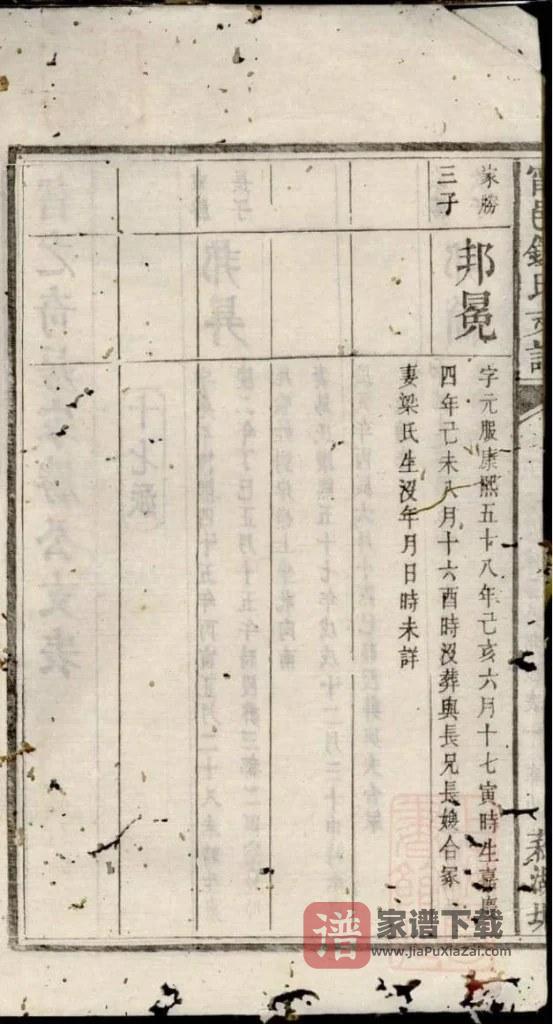 氏支譜
家勝
三子
邦冕
字元服康熙五十八年己亥六月十七寅時生嘉慶
四年己未八月十六酉時沒葬與長兄長嫂合冢
妻梁氏生沒年月日時未詳
谱
家谱下载
www.JiaPuXiaZai.com